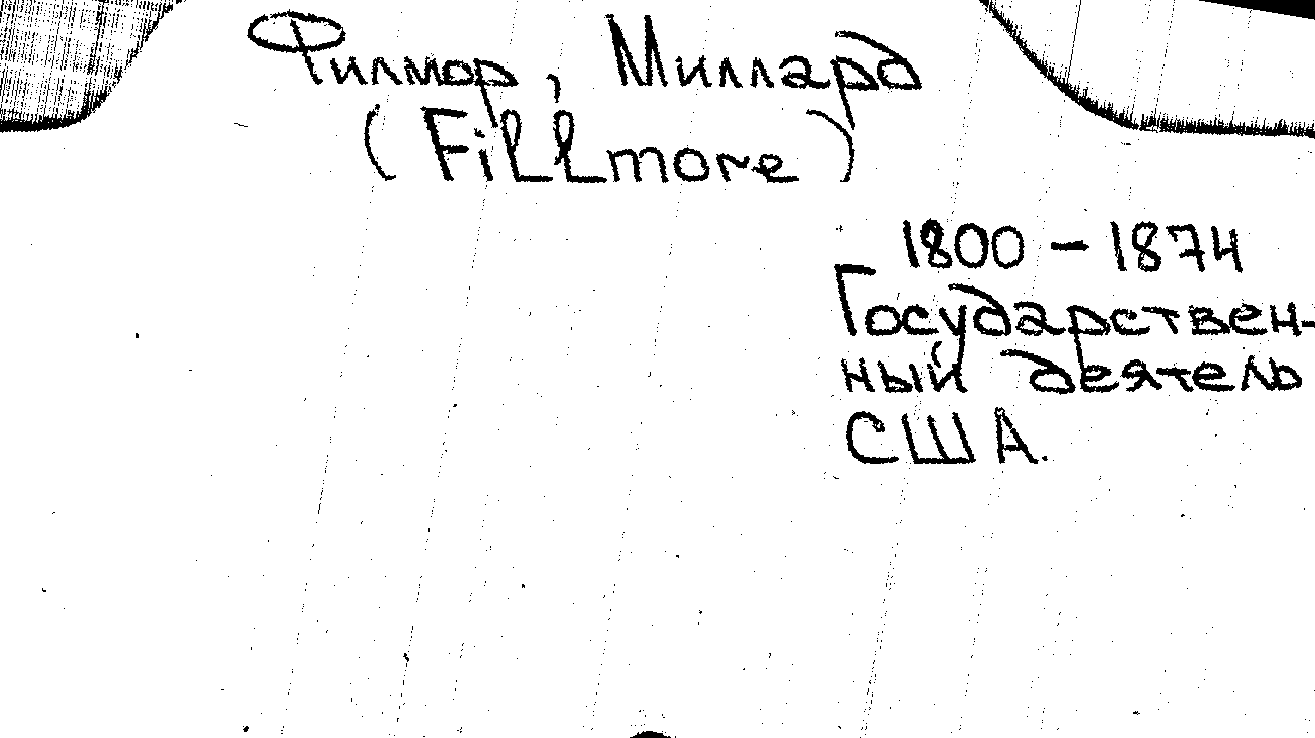 Филмор, Миллард
(Fillmore)
1800 – 1874
Государствен-
ный деятель
США.